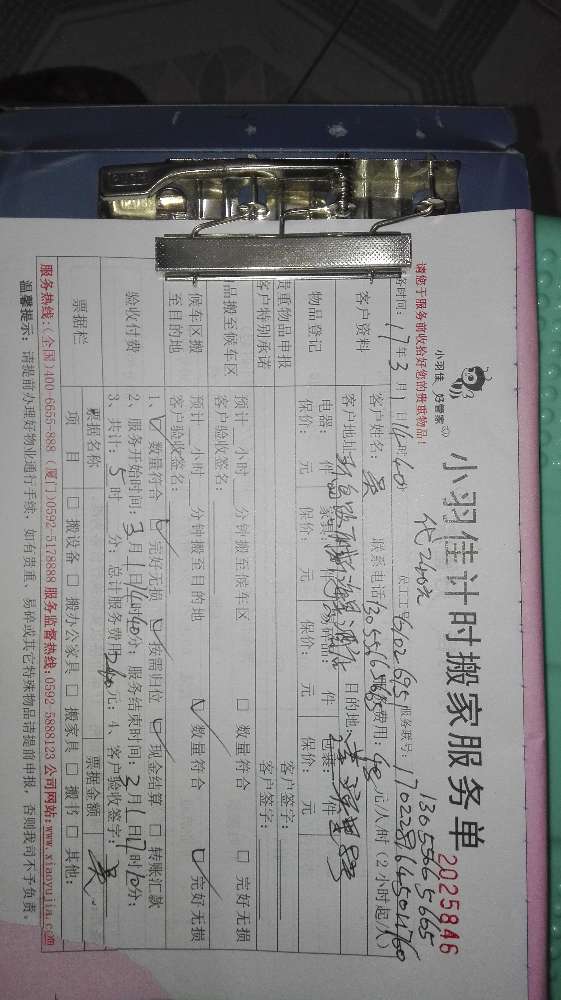 请您于服务前收拾好您的贵重物品!
小羽佳 好管家
小羽佳计时搬家服务单
2025846
代240元
13055665665
务时间: 17年3月1日14时40分
员工工号
服务账号:
客户资料
客户姓名: 吴
联系电话
服务费用: 48元/人/时 (2小时起)
客户地址:
目的地:
物品登记
电器: 件
家具: 件
易碎品: 件
包裹: 件
保价: 元
保价: 元
保价: 元
保价: 元
贵重物品申报
客户签字:
客户特别承诺
客户签字:
品搬至候车区
预计__小时__分钟搬至候车区
□ 数量符合
□ 完好无损
客户验收签名:
候车区搬至目的地
预计__小时__分钟搬至目的地
数量符合
完好无损
客户验收签名:
验收付费
1、 数量符合 完好无损 按需归位 现金结算 □ 转账汇款
2、服务开始时间: 3月1日14时40分; 服务结束时间: 3月1日17时10分;
3、共计: 5时 分; 总计服务费用240元; 4、客户验收签字: 吴
票据栏
票据名称
票据金额
项目
□ 搬设备 □ 搬办公家具 □ 搬家具 □ 搬书 □ 其他:
服务热线:(全国)400-6655-888 (厦门)0592-5178888 服务监督热线:0592-5888123 公司网站:www.xiaoyujia.com
温馨提示: 请提前办理好物业通行手续, 如有贵重、易碎或其它特殊物品请提前申报, 否则我司不予负责。